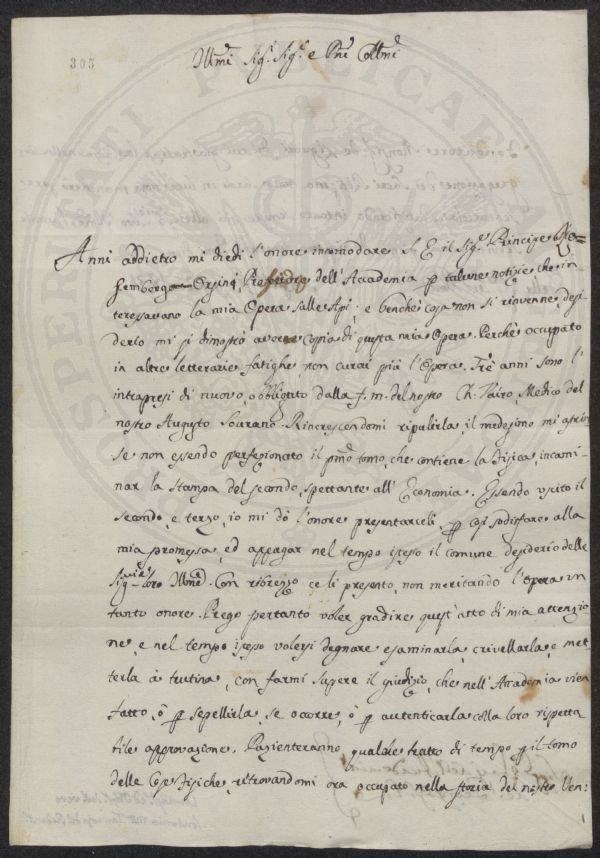 305
Ill.mi Sig.ri Sig.ri e P.ni Coll.mi
Anni addietro mi diedi l'onore incomodare S. E. il Sig.r Principe
Orsini, dell'Accademia p. talune notizie, che in
teressavano la mia Opera sulle Api; e benchè cosa non si rinvenne, desi
derio mi si dimostrò avere copia di questa mia Opera. Perchè occupato
in altre letterarie fatighe, non curai più l'Opera. Trè anni sono l'
intrapresi di nuovo, obbligato dalla f. m. del nostro Ch. Vairo, Medico del
nostro Augusto Sourano. Rincrescendomi ripulirla, il medesimo mi astrin
se non essendo perfezionato il pmo tomo, che contiene la Fisica, incami
nar la stampa del secondo, spettante all'Economia. Essendo uscito il
secondo, e terzo, io mi dò l'onore presentarceli, p. così sodisfare alla
mia promessa, ed appagar nel tempo istesso il comune desiderio delle
Sig.rie loro Ill.me. Con ribrezzo ce li presento, non meritando l'opera un
tanto onore. Prego pertanto voler gradire quest'atto di mia attenzio
ne, e nel tempo istesso volersi degnare esaminarla, crivellarla, e met
terla à trutina, con farmi sapere il giudizio, che nell'Accademia vien
fatto, ò p. sepellirla, se occorre, ò p. autenticarla colla loro rispetta
bile approvazione. Pazienteranno qualche tratto di tempo p. il tomo
delle Cose Fisiche, ritrovandomi ora occupato nella storia del nostro Ven: